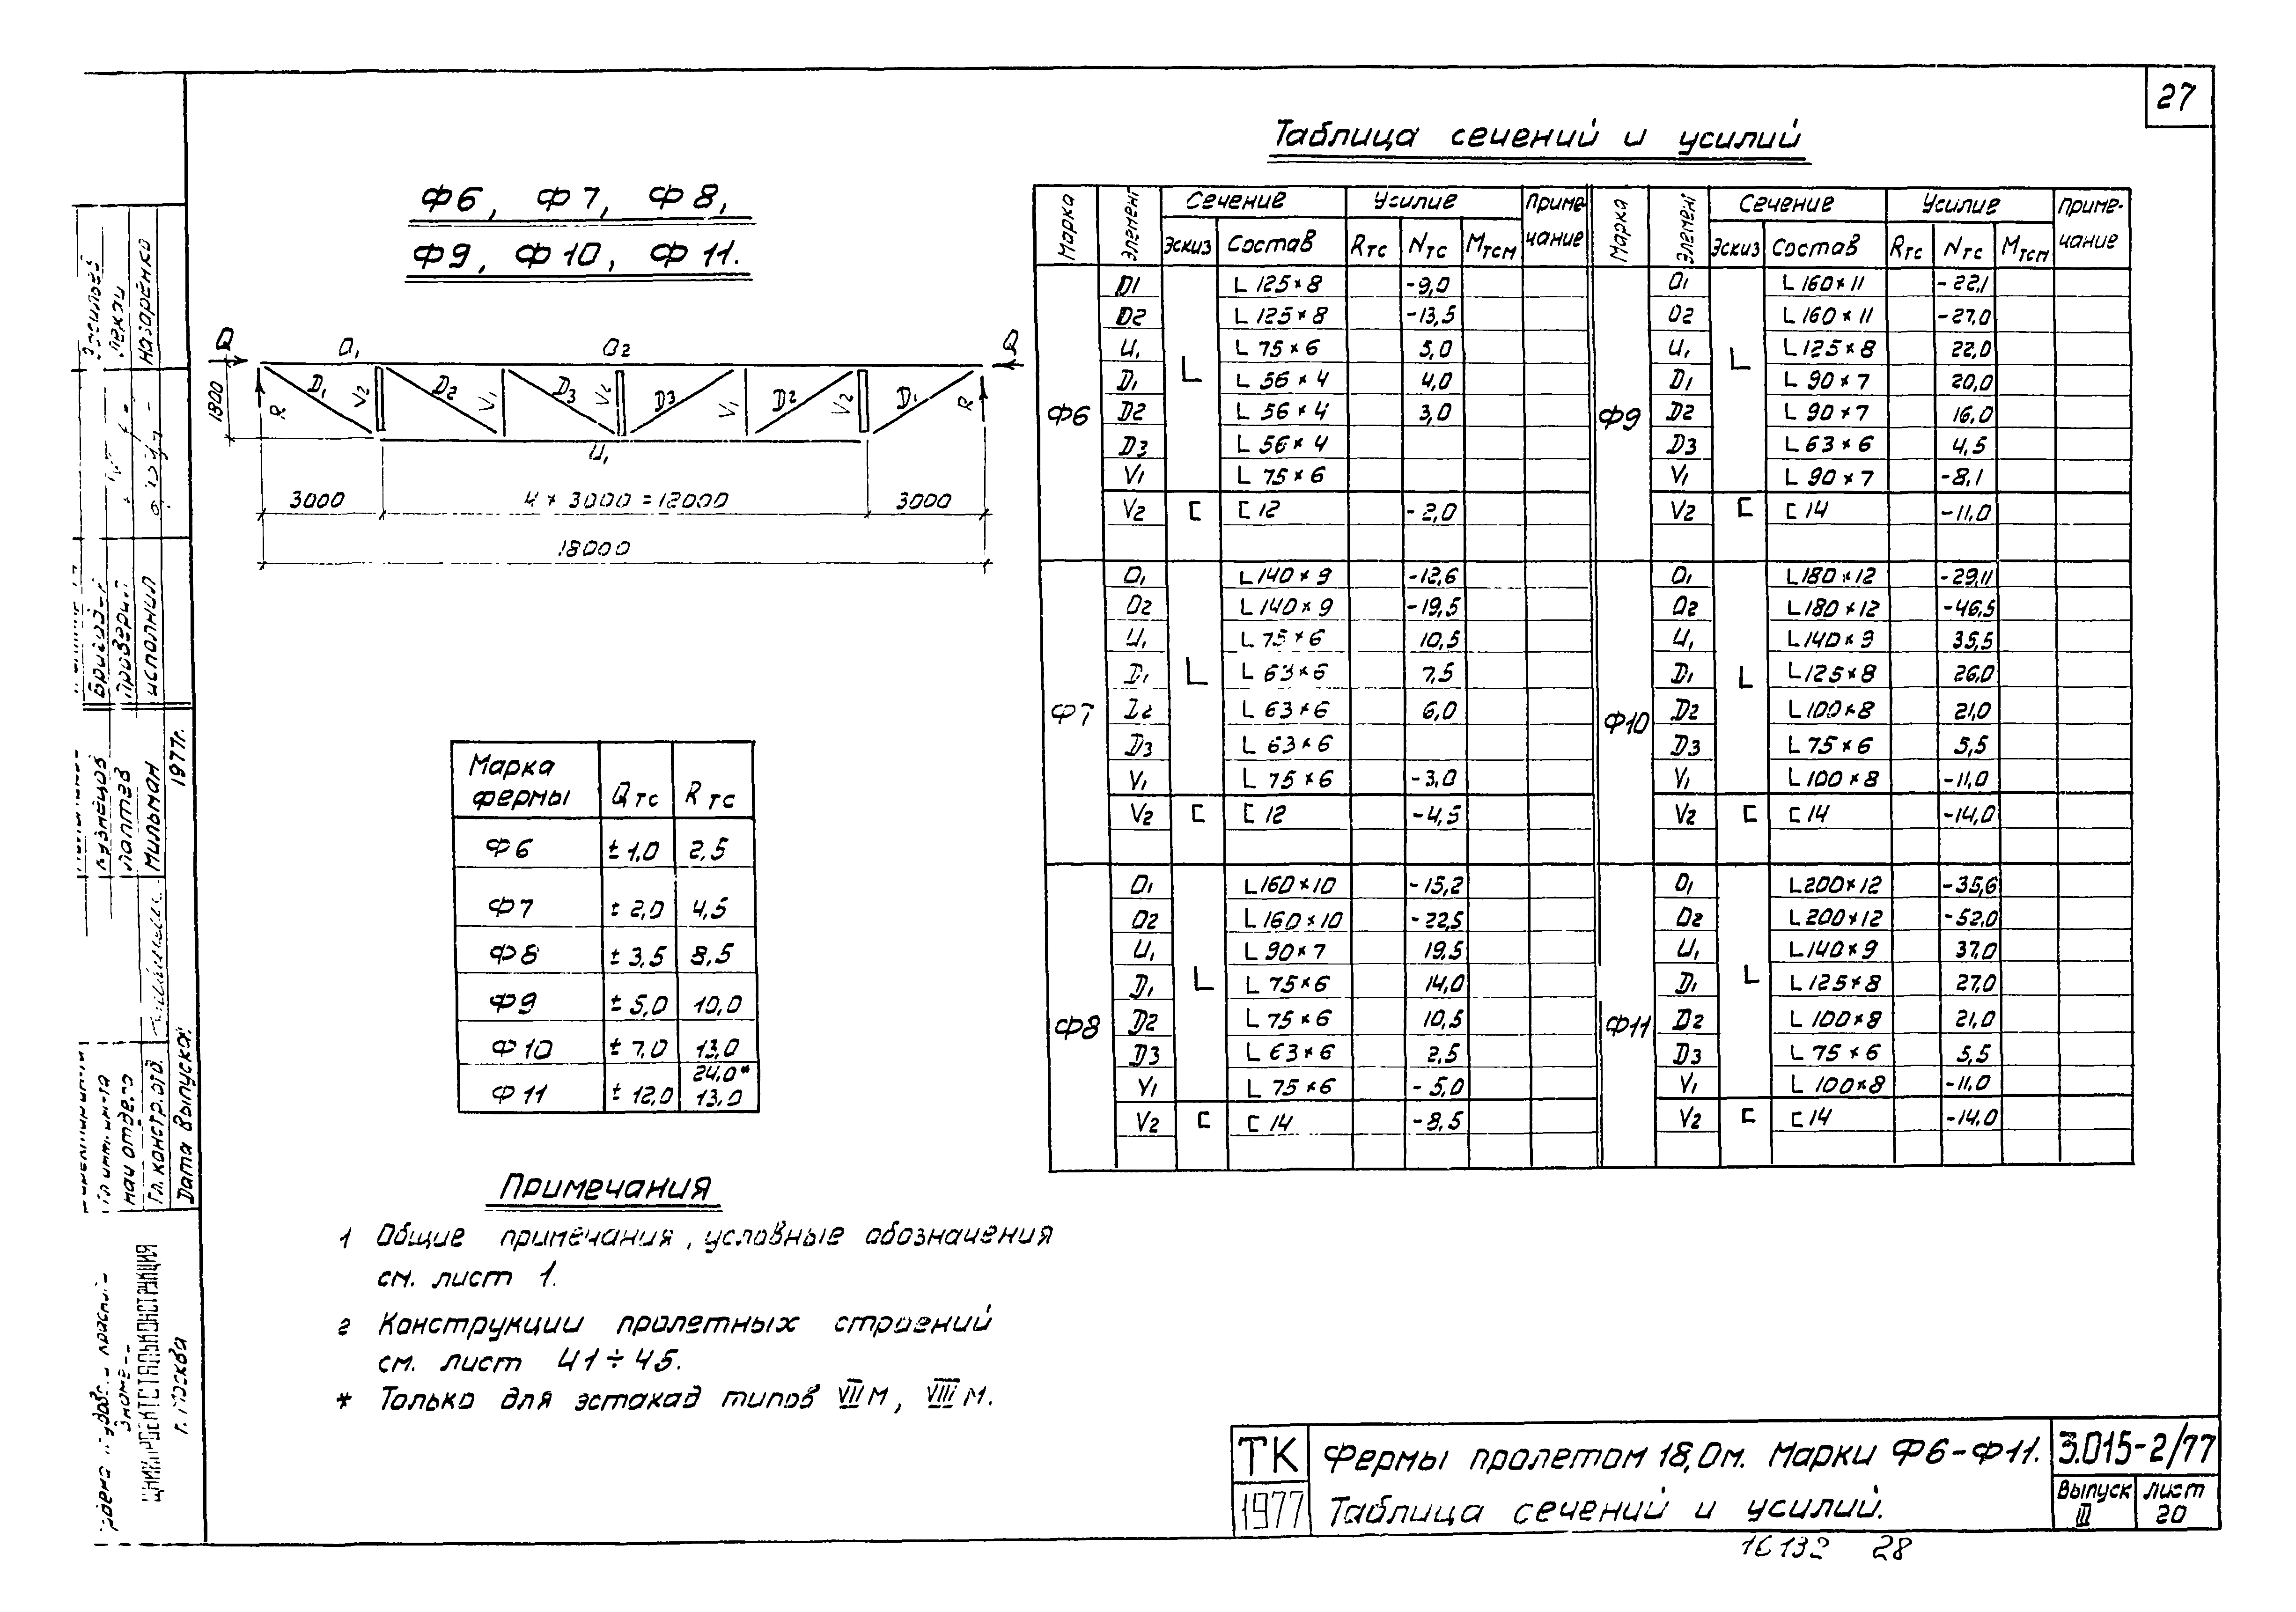 27
Таблица сечений и усилий
Ф6, Ф7, Ф8,
Ф9, Ф10, Ф11.
Q O₁ O₂ Q
1800 R D₁ V₂ D₂ V₁ D₃ V₂ D₃ V₁ D₂ V₂ D₁ R
U₁
3000 4 × 3000 = 12000 3000
18000
Марка Элемент Сечение Усилие Примечание Марка Элемент Сечение Усилие Примечание
Эскиз Состав Rтс Nтс Мтсм Эскиз Состав Rтс Nтс Мтсм
Ф6
O1 L 125×8 -9,0
O2 L 125×8 -13,5
U₁ L 75×6 5,0
D₁ L 56×4 4,0
D2 L 56×4 3,0
D3 L 56×4
V₁ L 75×6
V2 [ [ 12 -2,0
Ф7
O₁ L 140×9 -12,6
O2 L 140×9 -19,5
U₁ L 75×6 10,5
D₁ L 63×6 7,5
D2 L 63×6 6,0
D3 L 63×6
V₁ L 75×6 -3,0
V2 [ [ 12 -4,5
Ф8
O₁ L 160×10 -15,2
O2 L 160×10 -22,5
U₁ L 90×7 19,5
D₁ L 75×6 14,0
D2 L 75×6 10,5
D3 L 63×6 2,5
V₁ L 75×6 -5,0
V2 [ [ 14 -8,5
Ф9
O₁ L 160×11 -22,1
O2 L 160×11 -27,0
U₁ L 125×8 22,0
D₁ L 90×7 20,0
D2 L 90×7 16,0
D3 L 63×6 4,5
V₁ L 90×7 -8,1
V2 [ [ 14 -11,0
Ф10
O₁ L 180×12 -29,11
O2 L 180×12 -46,5
U₁ L 140×9 35,5
D₁ L 125×8 26,0
D2 L 100×8 21,0
D3 L 75×6 5,5
V₁ L 100×8 -11,0
V2 [ [ 14 -14,0
Ф11
O₁ L 200×12 -35,6
O2 L 200×12 -52,0
U₁ L 140×9 37,0
D₁ L 125×8 27,0
D2 L 100×8 21,0
D3 L 75×6 5,5
V₁ L 100×8 -11,0
V2 [ [ 14 -14,0
Марка фермы Qтс Rтс
Ф6 ±1,0 2,5
Ф7 ±2,0 4,5
Ф8 ±3,5 8,5
Ф9 ±5,0 10,0
Ф10 ±7,0 13,0
24,0*
Ф11 ±12,0 13,0
Примечания
1 Общие примечания, условные обозначения
см. лист 1.
2 Конструкции пролетных строений
см. лист 41÷45.
* Только для эстакад типов VIIм, VIIIм.
ТК Фермы пролетом 18,0м. Марки Ф6-Ф11. 3.015-2/77
1977 Таблица сечений и усилий. Выпуск III Лист 20
16132 28
Назаренко
Бригадир
Проверил
Исполнил
Лаптев
Мильман
1977г.
Нач отдела
Гл. констр. отд.
Дата выпуска:
ЦНИИПРОЕКТСТАЛЬКОНСТРУКЦИЯ
г. Москва